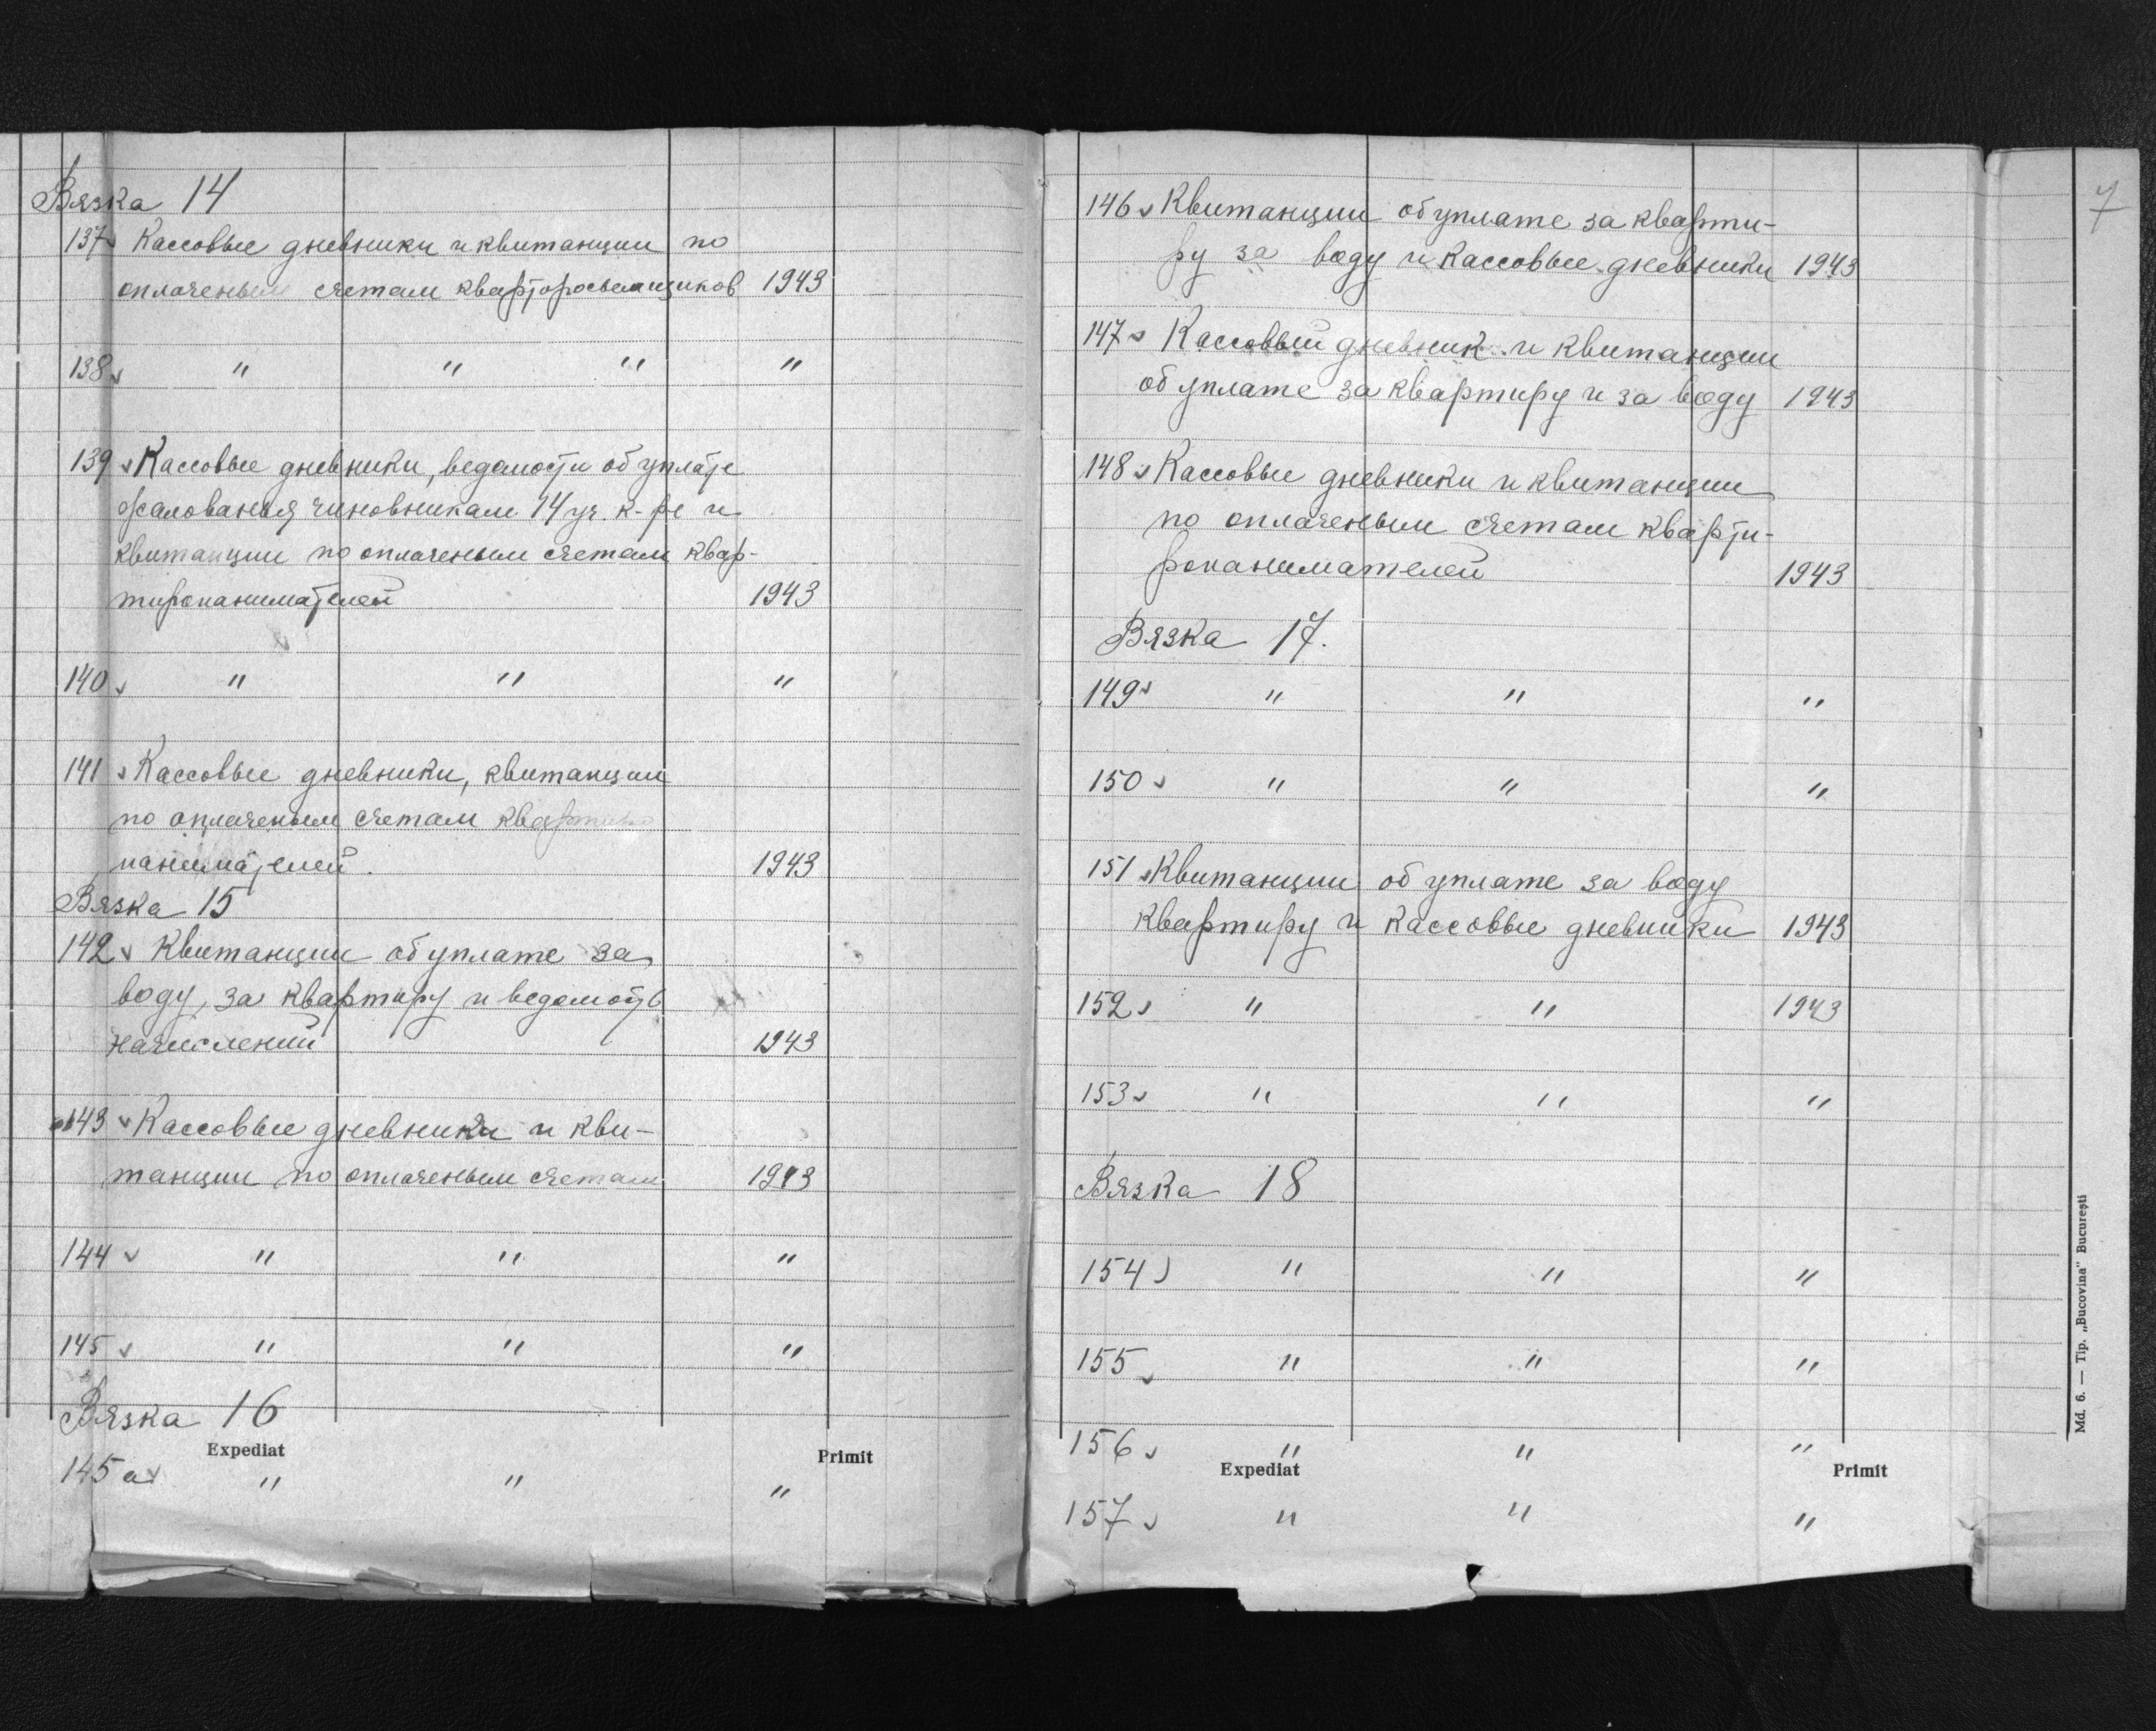 Вязка 14
137 v Кассовые дневники и квитанции по
оплаченым счетам кварторосьемщиков 1943
138 v " " " "
139 v Кассовые дневники, ведомости об уплате
жалованья чиновникам 14 уч. к-ре и
квитанции по оплаченым счетам квар-
тиронанимателей 1943
140 v " " "
141 v Кассовые дневники, квитанции
по оплаченым счетам квартиро
нанимателей. 1943
Вязка 15
142 v Квитанции об уплате за
воду, за квартиру и ведомость
начислений 1943
143 v Кассовые дневники и кви-
танции по оплаченым счетам 1943
144 v " " "
145 v " " "
Вязка 16
Expediat Primit
145 а v " " "
7
146 v Квитанции об уплате за кварти-
ру за воду и кассовые дневники 1943
147 v Кассовый дневник и квитанции
об уплате за квартиру и за воду 1943
148 v Кассовые дневники и квитанции
по оплаченым счетам кварти-
ронанимателей 1943
Вязка 17.
149 v " " "
150 v " " "
151 v Квитанции об уплате за воду
квартиру и кассовые дневники 1943
152 v " " 1943
153 v " " "
Вязка 18
154 v " " "
155 v " " "
156 v " " "
Expediat Primit
157 v " " "
Md. 6. — Tip. „Bucovina" Bucureşti